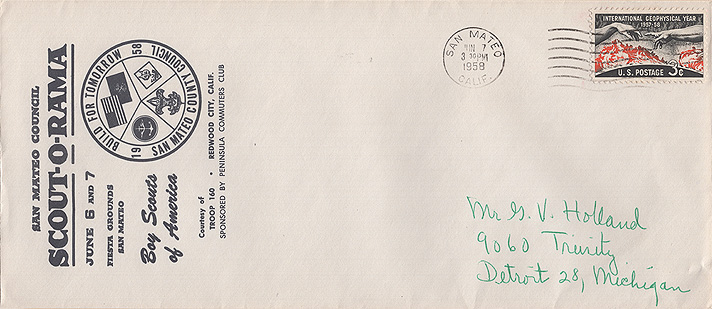 SAN MATEO COUNCIL
SCOUT-O-RAMA
JUNE 6 AND 7
FIESTA GROUNDS
SAN MATEO
BUILD FOR TOMORROW
1958
SAN MATEO COUNTY COUNCIL
Boy Scouts
of America
Courtesy of
TROOP 160 • REDWOOD CITY, CALIF.
SPONSORED BY PENINSULA COMMUTERS CLUB
SAN MATEO
JUN 7
PM
1958
CALIF.
INTERNATIONAL GEOPHYSICAL YEAR
1957-58
U.S. POSTAGE 3c
Mr G. V. Holland
9060 Trinity
Detroit 28, Michigan